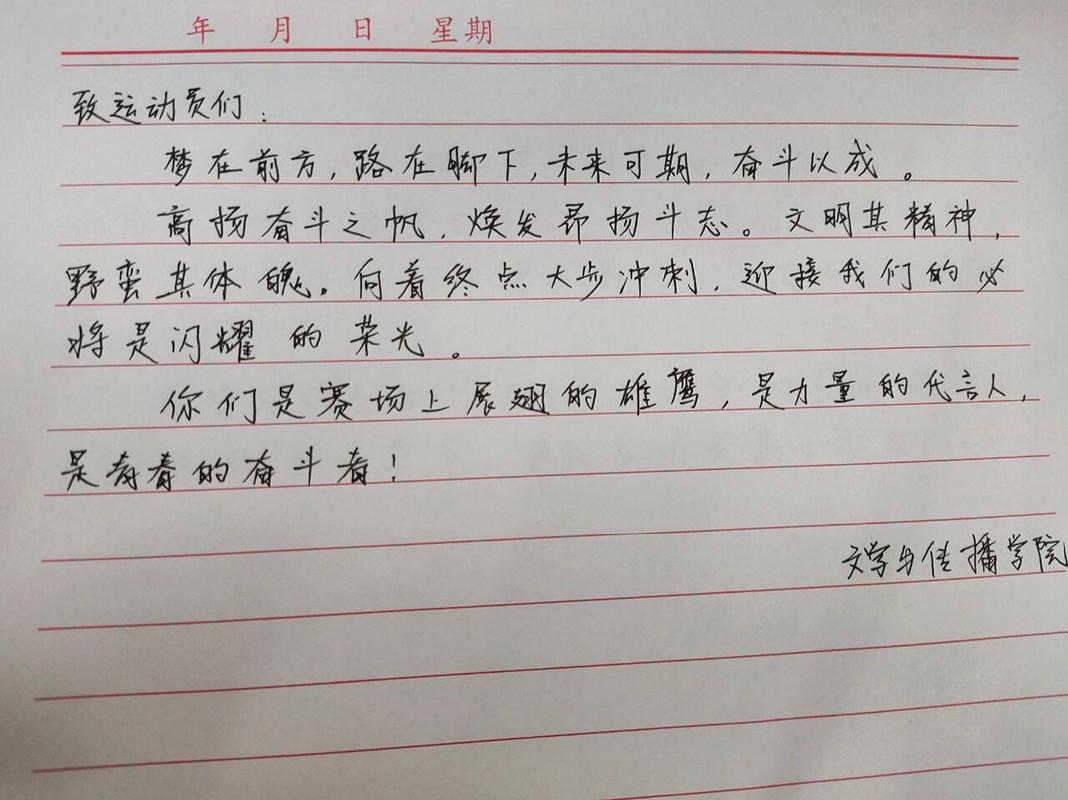 年 月 日 星期
致运动员们：
梦在前方，路在脚下，未来可期，奋斗以成。
高扬奋斗之帆，焕发昂扬斗志。文明其精神，
野蛮其体魄。向着终点大步冲刺，迎接我们的必
将是闪耀的荣光。
你们是赛场上展翅的雄鹰，是力量的代言人，
是青春的奋斗者！
文学与传播学院